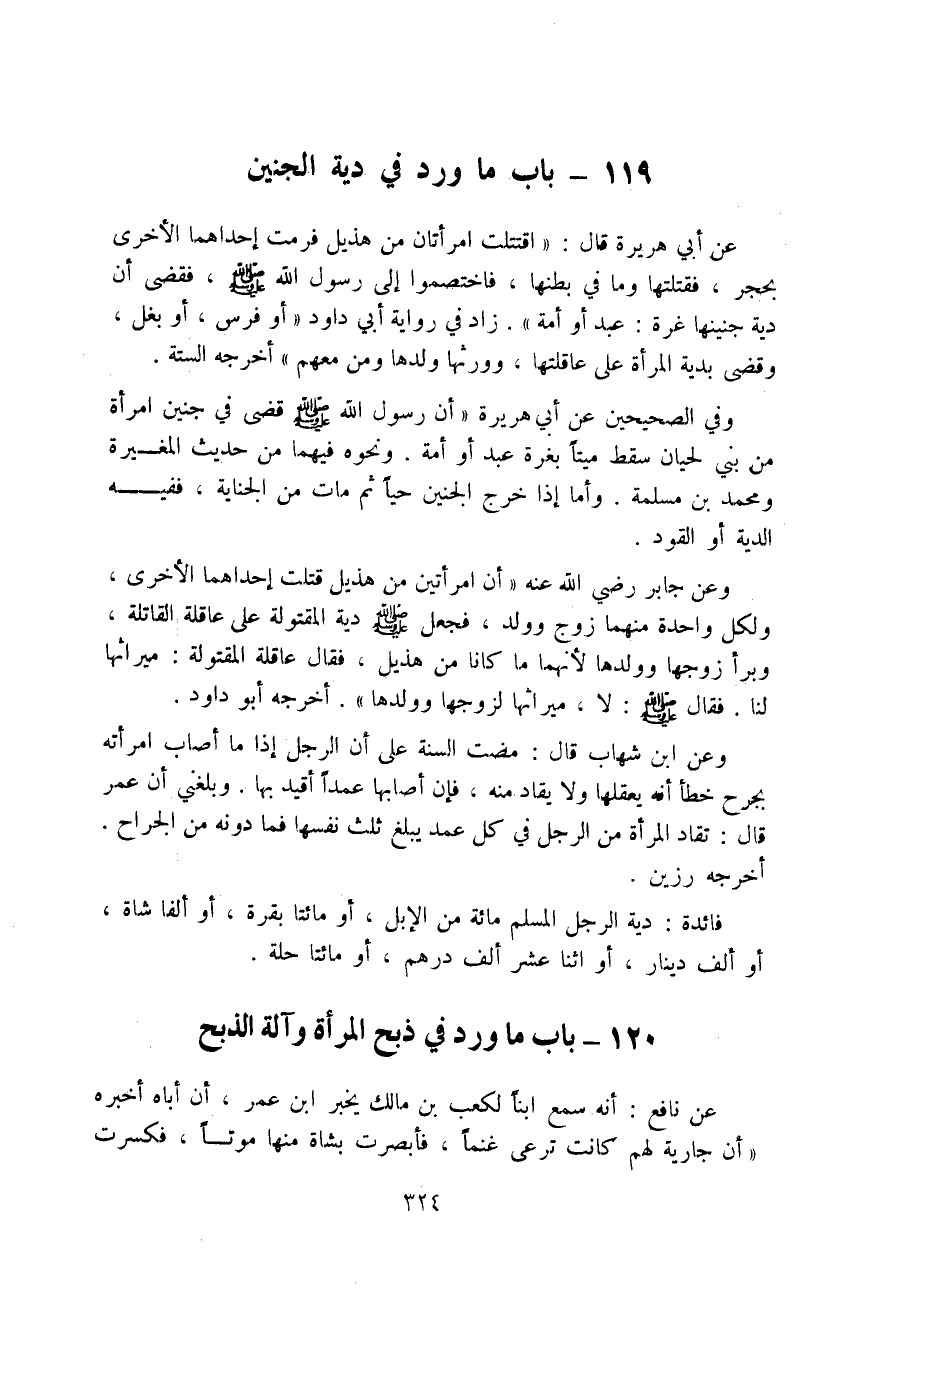 ١١٩ – باب ما ورد في دية الجنين
عن أبي هريرة قال : « اقتتلت امرأتان من هذيل فرمت إحداهما الأخرى
بحجر ، فقتلتها وما في بطنها ، فاختصموا إلى رسول الله ﷺ ، فقضى أن
دية جنينها غرة : عبد أو أمة » . زاد في رواية أبي داود « أو فرس ، أو بغل ،
وقضى بدية المرأة على عاقلتها ، وورثها ولدها ومن معهم » أخرجه الستة .
وفي الصحيحين عن أبي هريرة « أن رسول الله ﷺ قضى في جنين امرأة
من بني لحيان سقط ميتاً بغرة عبد أو أمة . ونحوه فيهما من حديث المغـــيرة
ومحمد بن مسلمة . وأما إذا خرج الجنين حياً ثم مات من الجناية ، ففيـــــه
الدية أو القود .
وعن جابر رضي الله عنه « أن امرأتين من هذيل قتلت إحداهما الأخرى ،
ولكل واحدة منهما زوج وولد ، فجعل ﷺ دية المقتولة على عاقلة القاتلة ،
وبرأ زوجها وولدها لأنهما ما كانا من هذيل ، فقال عاقلة المقتولة : ميراثها
لنا . فقال ﷺ : لا ، ميراثها لزوجها وولدها » . أخرجه أبو داود .
وعن ابن شهاب قال : مضت السنة على أن الرجل إذا ما أصاب امرأته
بجرح خطأ أنه يعقلها ولا يقاد منه ، فإن أصابها عمداً أقيد بها . وبلغني أن عمر
قال : تقاد المرأة من الرجل في كل عمد يبلغ ثلث نفسها فما دونه من الجراح .
أخرجه رزين .
فائدة : دية الرجل المسلم مائة من الإبل ، أو مائتا بقرة ، أو ألفا شاة ،
أو ألف دينار ، أو اثنا عشر ألف درهم ، أو مائتا حلة .
١٢٠ – باب ما ورد في ذبح المرأة وآلة الذبح
عن نافع : أنه سمع ابناً لكعب بن مالك يخبر ابن عمر ، أن أباه أخبره
« أن جارية لهم كانت ترعى غنماً ، فأبصرت بشاة منها موتـــاً ، فكسرت
٣٢٤